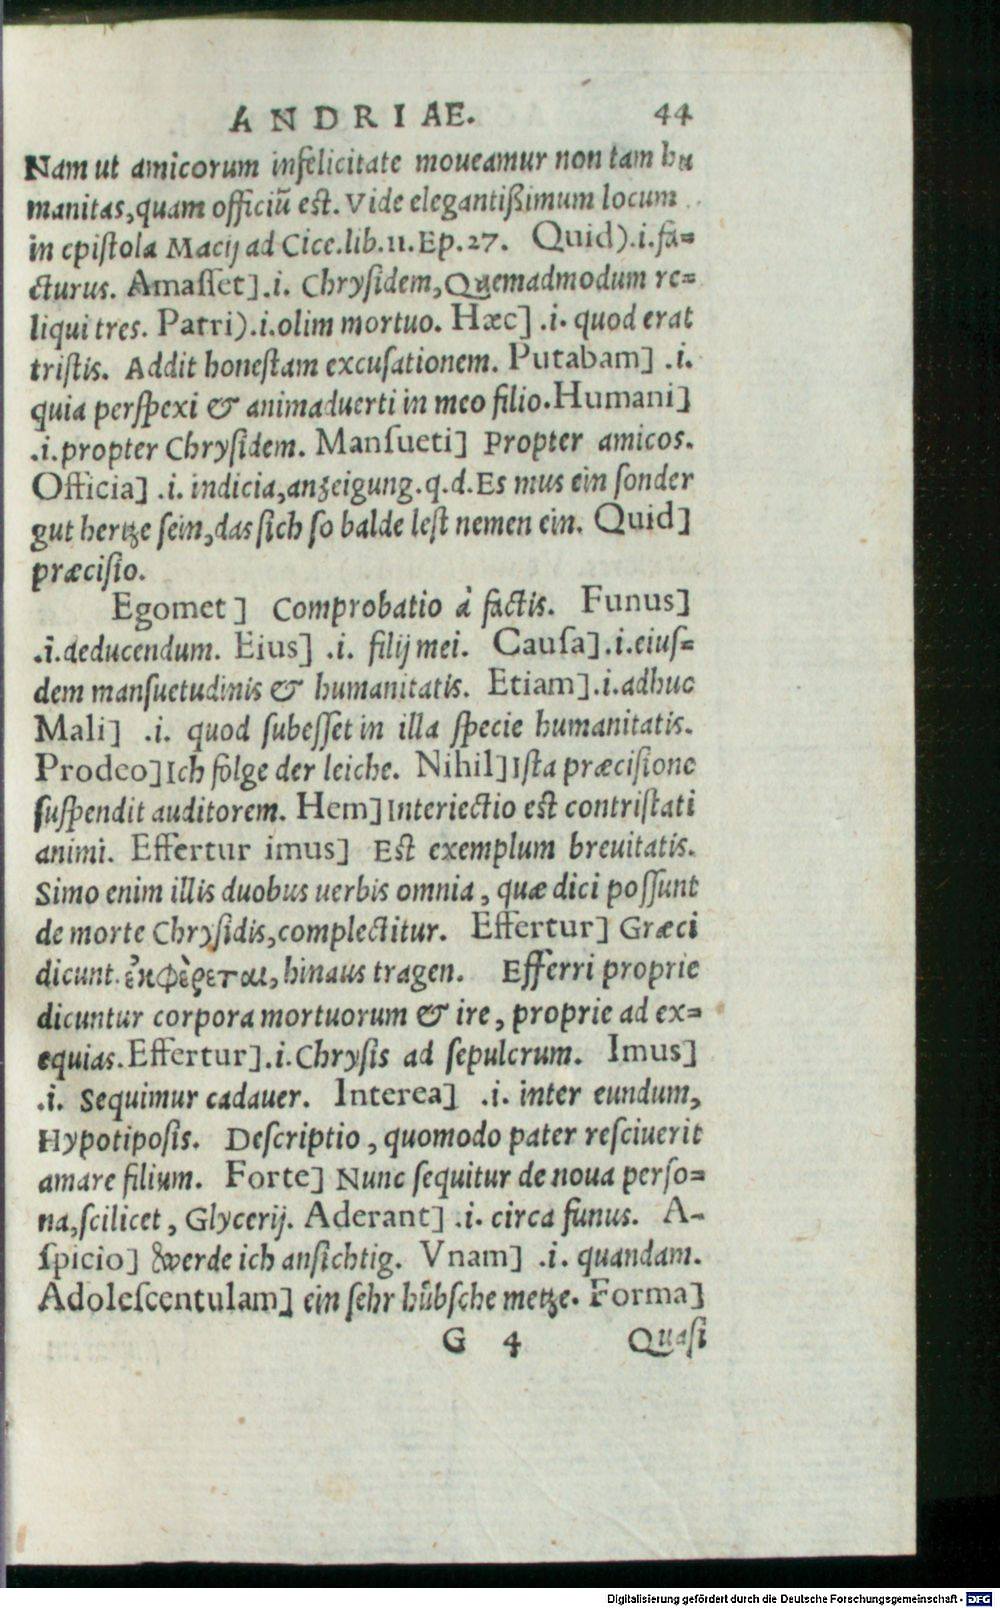 ANDRIAE. 44
Nam ut amicorum infelicitate moueamur non tam hu
manitas,quam officiũ est. Vide elegantißimum locum
in epistola Macij ad Cice.lib.11.Ep.27. Quid).i.fa=
cturus. Amasset].i. Chrysidem,Quemadmodum re=
liqui tres. Patri).i.olim mortuo. Hæc] .i. quod erat
tristis. Addit honestam excusationem. Putabam] .i.
quia perspexi & animaduerti in meo filio.Humani]
.i.propter Chrysidem. Mansueti] Propter amicos.
Officia] .i. indicia,anzeigung.q.d.Es mus ein sonder
gut hertze sein,das sich so balde lest nemen ein. Quid]
præcisio.
Egomet] Comprobatio à factis. Funus]
.i.deducendum. Eius] .i. filij mei. Causa].i.eius=
dem mansuetudinis & humanitatis. Etiam].i.adhuc
Mali] .i. quod subesset in illa specie humanitatis.
Prodeo]Ich folge der leiche. Nihil]Ista præcisione
suspendit auditorem. Hem]Interiectio est contristati
animi. Effertur imus] Est exemplum breuitatis.
Simo enim illis duobus uerbis omnia, quæ dici possunt
de morte Chrysidis,complectitur. Effertur] Græci
dicunt.ἐκφέρεται,hinaus tragen. Efferri proprie
dicuntur corpora mortuorum & ire, proprie ad ex=
equias.Effertur].i.Chrysis ad sepulcrum. Imus]
.i. Sequimur cadauer. Interea] .i. inter eundum,
Hypotiposis. Descriptio, quomodo pater resciuerit
amare filium. Forte] Nunc sequitur de noua perso=
na,scilicet, Glycerij. Aderant] .i. circa funus. A-
spicio] werde ich ansichtig. Vnam] .i. quandam.
Adolescentulam] ein sehr hůbsche metze. Forma]
G 4 Quasi
Digitalisierung gefördert durch die Deutsche Forschungsgemeinschaft - DFG